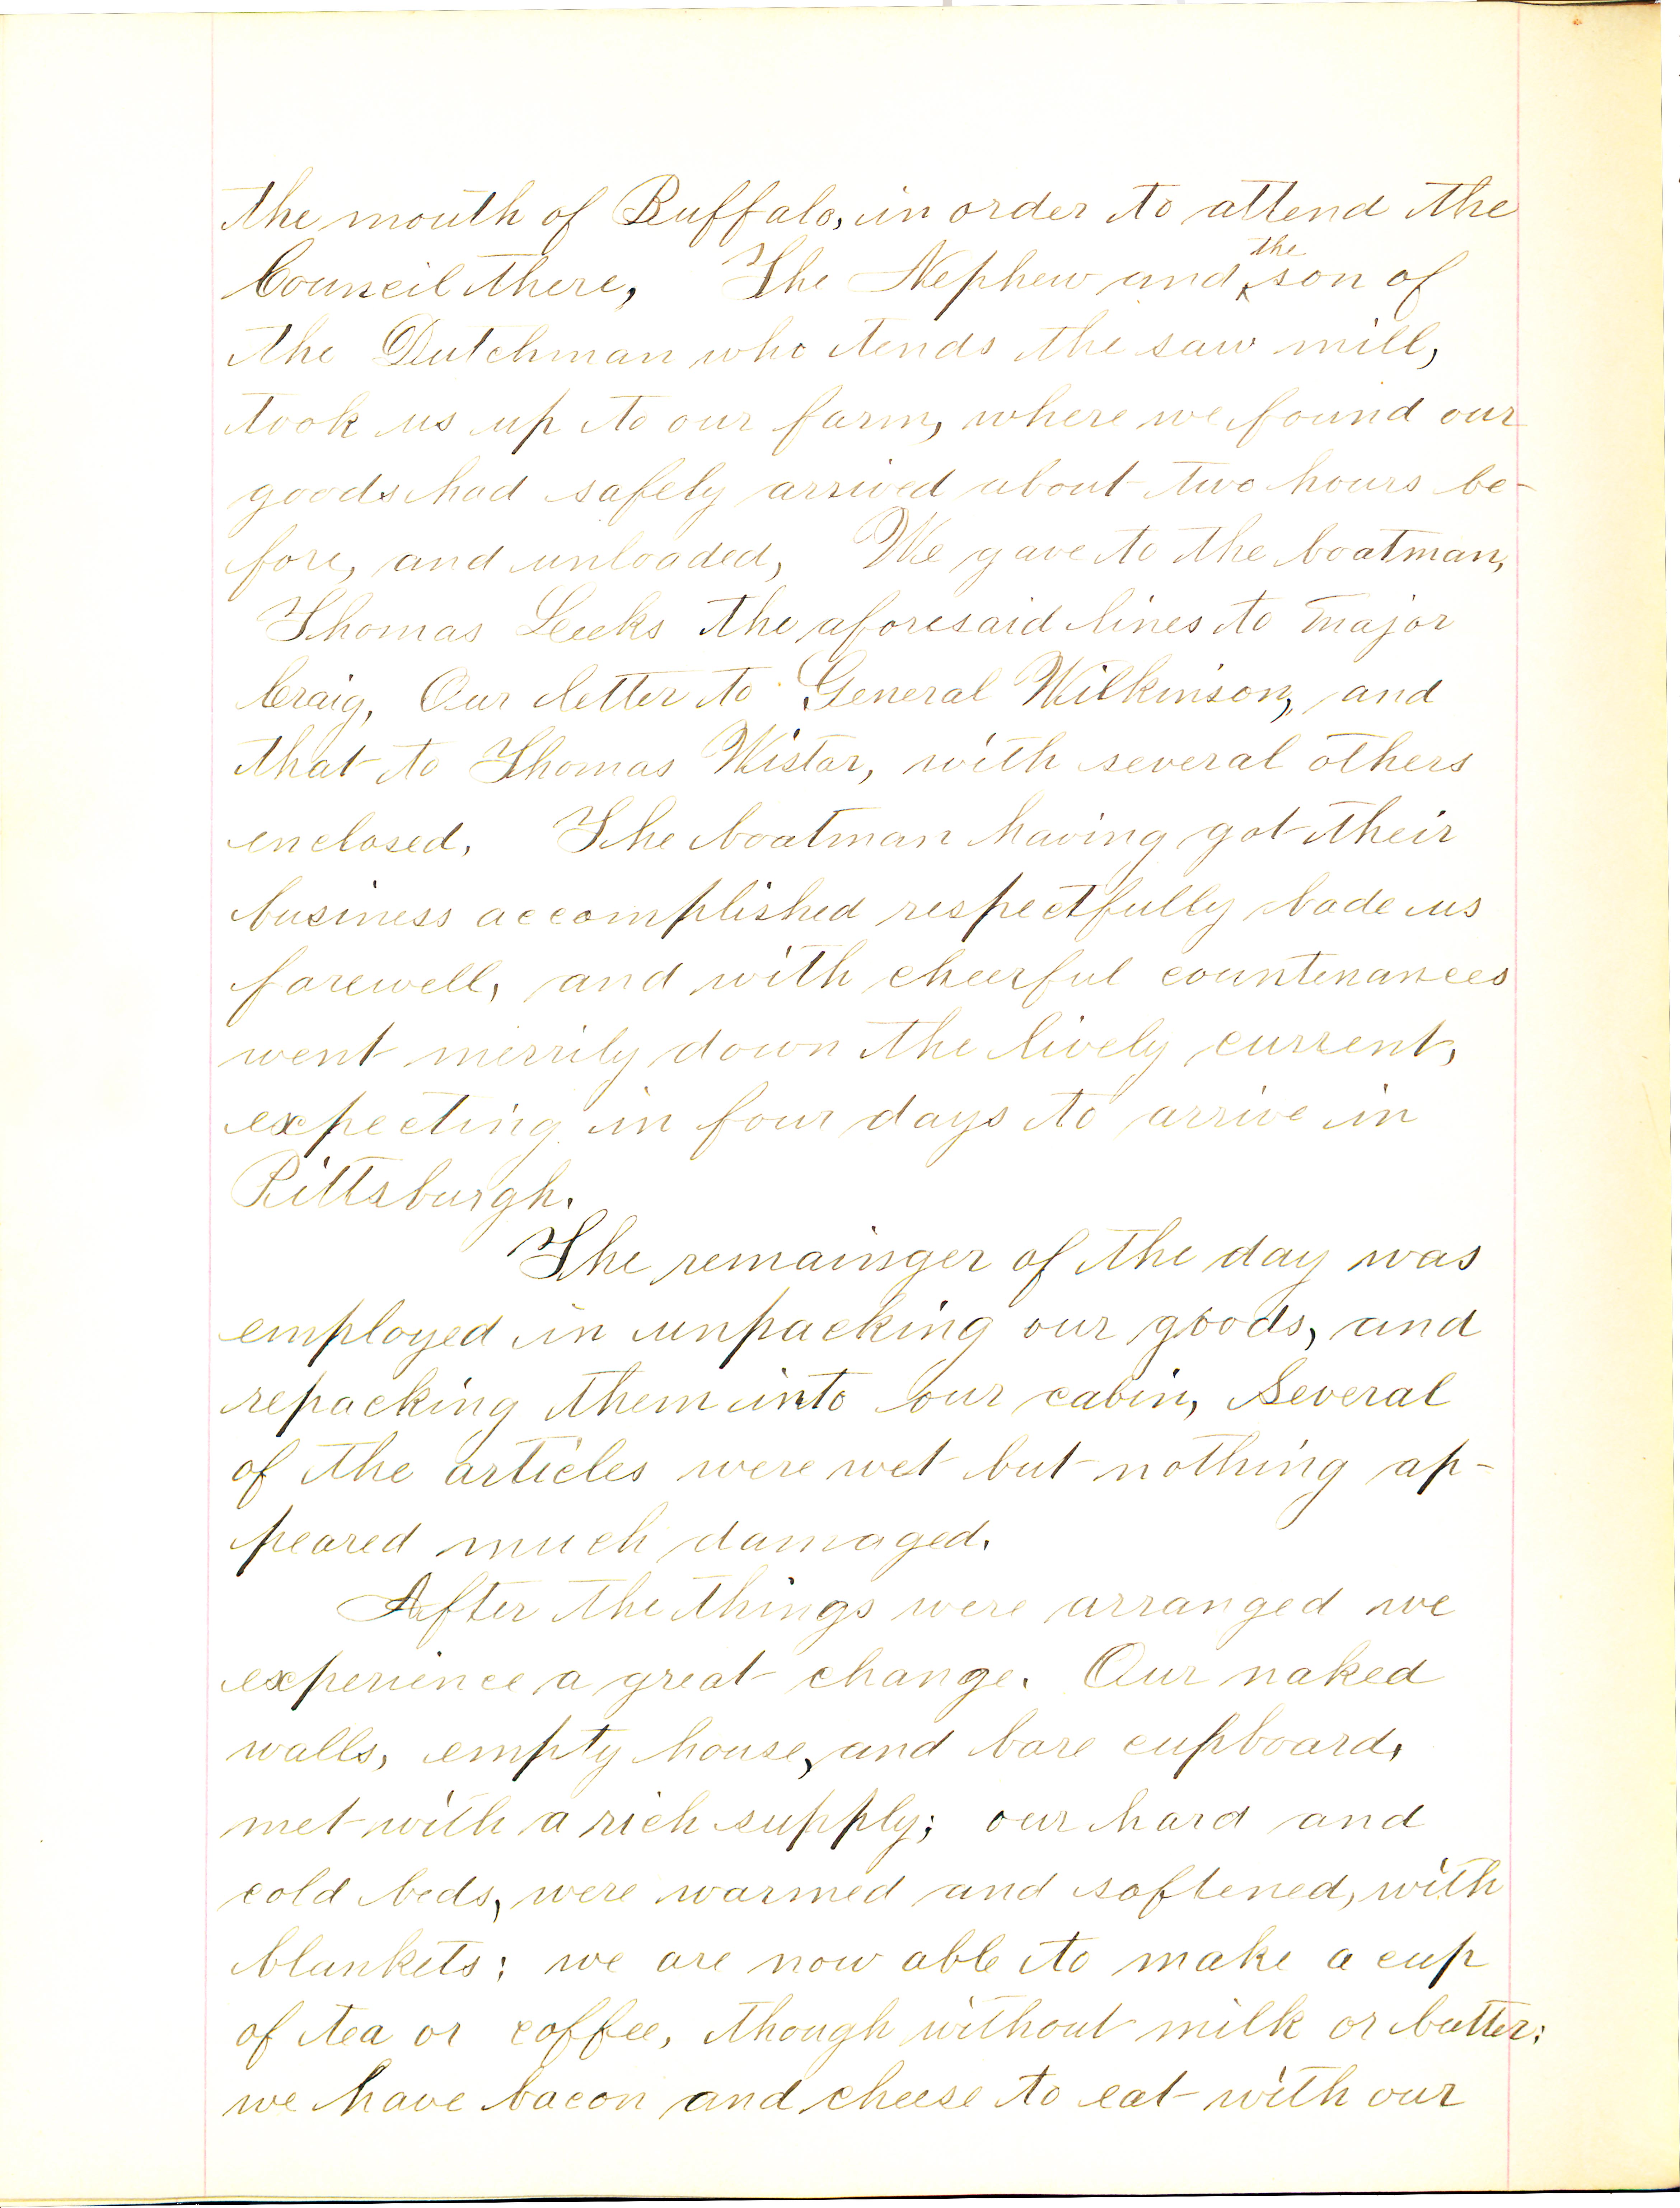 the mouth of Buffalo, in order to attend the
Council there, The Nephew and the son of
the Dutchman who tends the saw mill,
took us up to our farm, where we found our
goods had safely arrived about two hours be-
fore, and unloaded, We gave to the boatman,
Thomas Leeks the aforesaid lines to Major
Craig, Our letter to General Wilkinson, and
that to Thomas Wistar, with several others
enclosed. The boatman having got their
business accomplished respectfully bade us
farewell, and with cheerful countenances
went merrily down the lively current,
expecting in four days to arrive in
Pittsburgh.
The remainger of the day was
employed in unpacking our goods, and
repacking them into our cabin, Several
of the articles were wet but nothing ap-
peared much damaged.
After the things were arranged we
experience a great change. Our naked
walls, empty house, and bare cupboard,
met with a rich supply; our hard and
cold beds, were warmed and softened, with
blankets; we are now able to make a cup
of tea or coffee, though without milk or butter;
we have bacon and cheese to eat with our